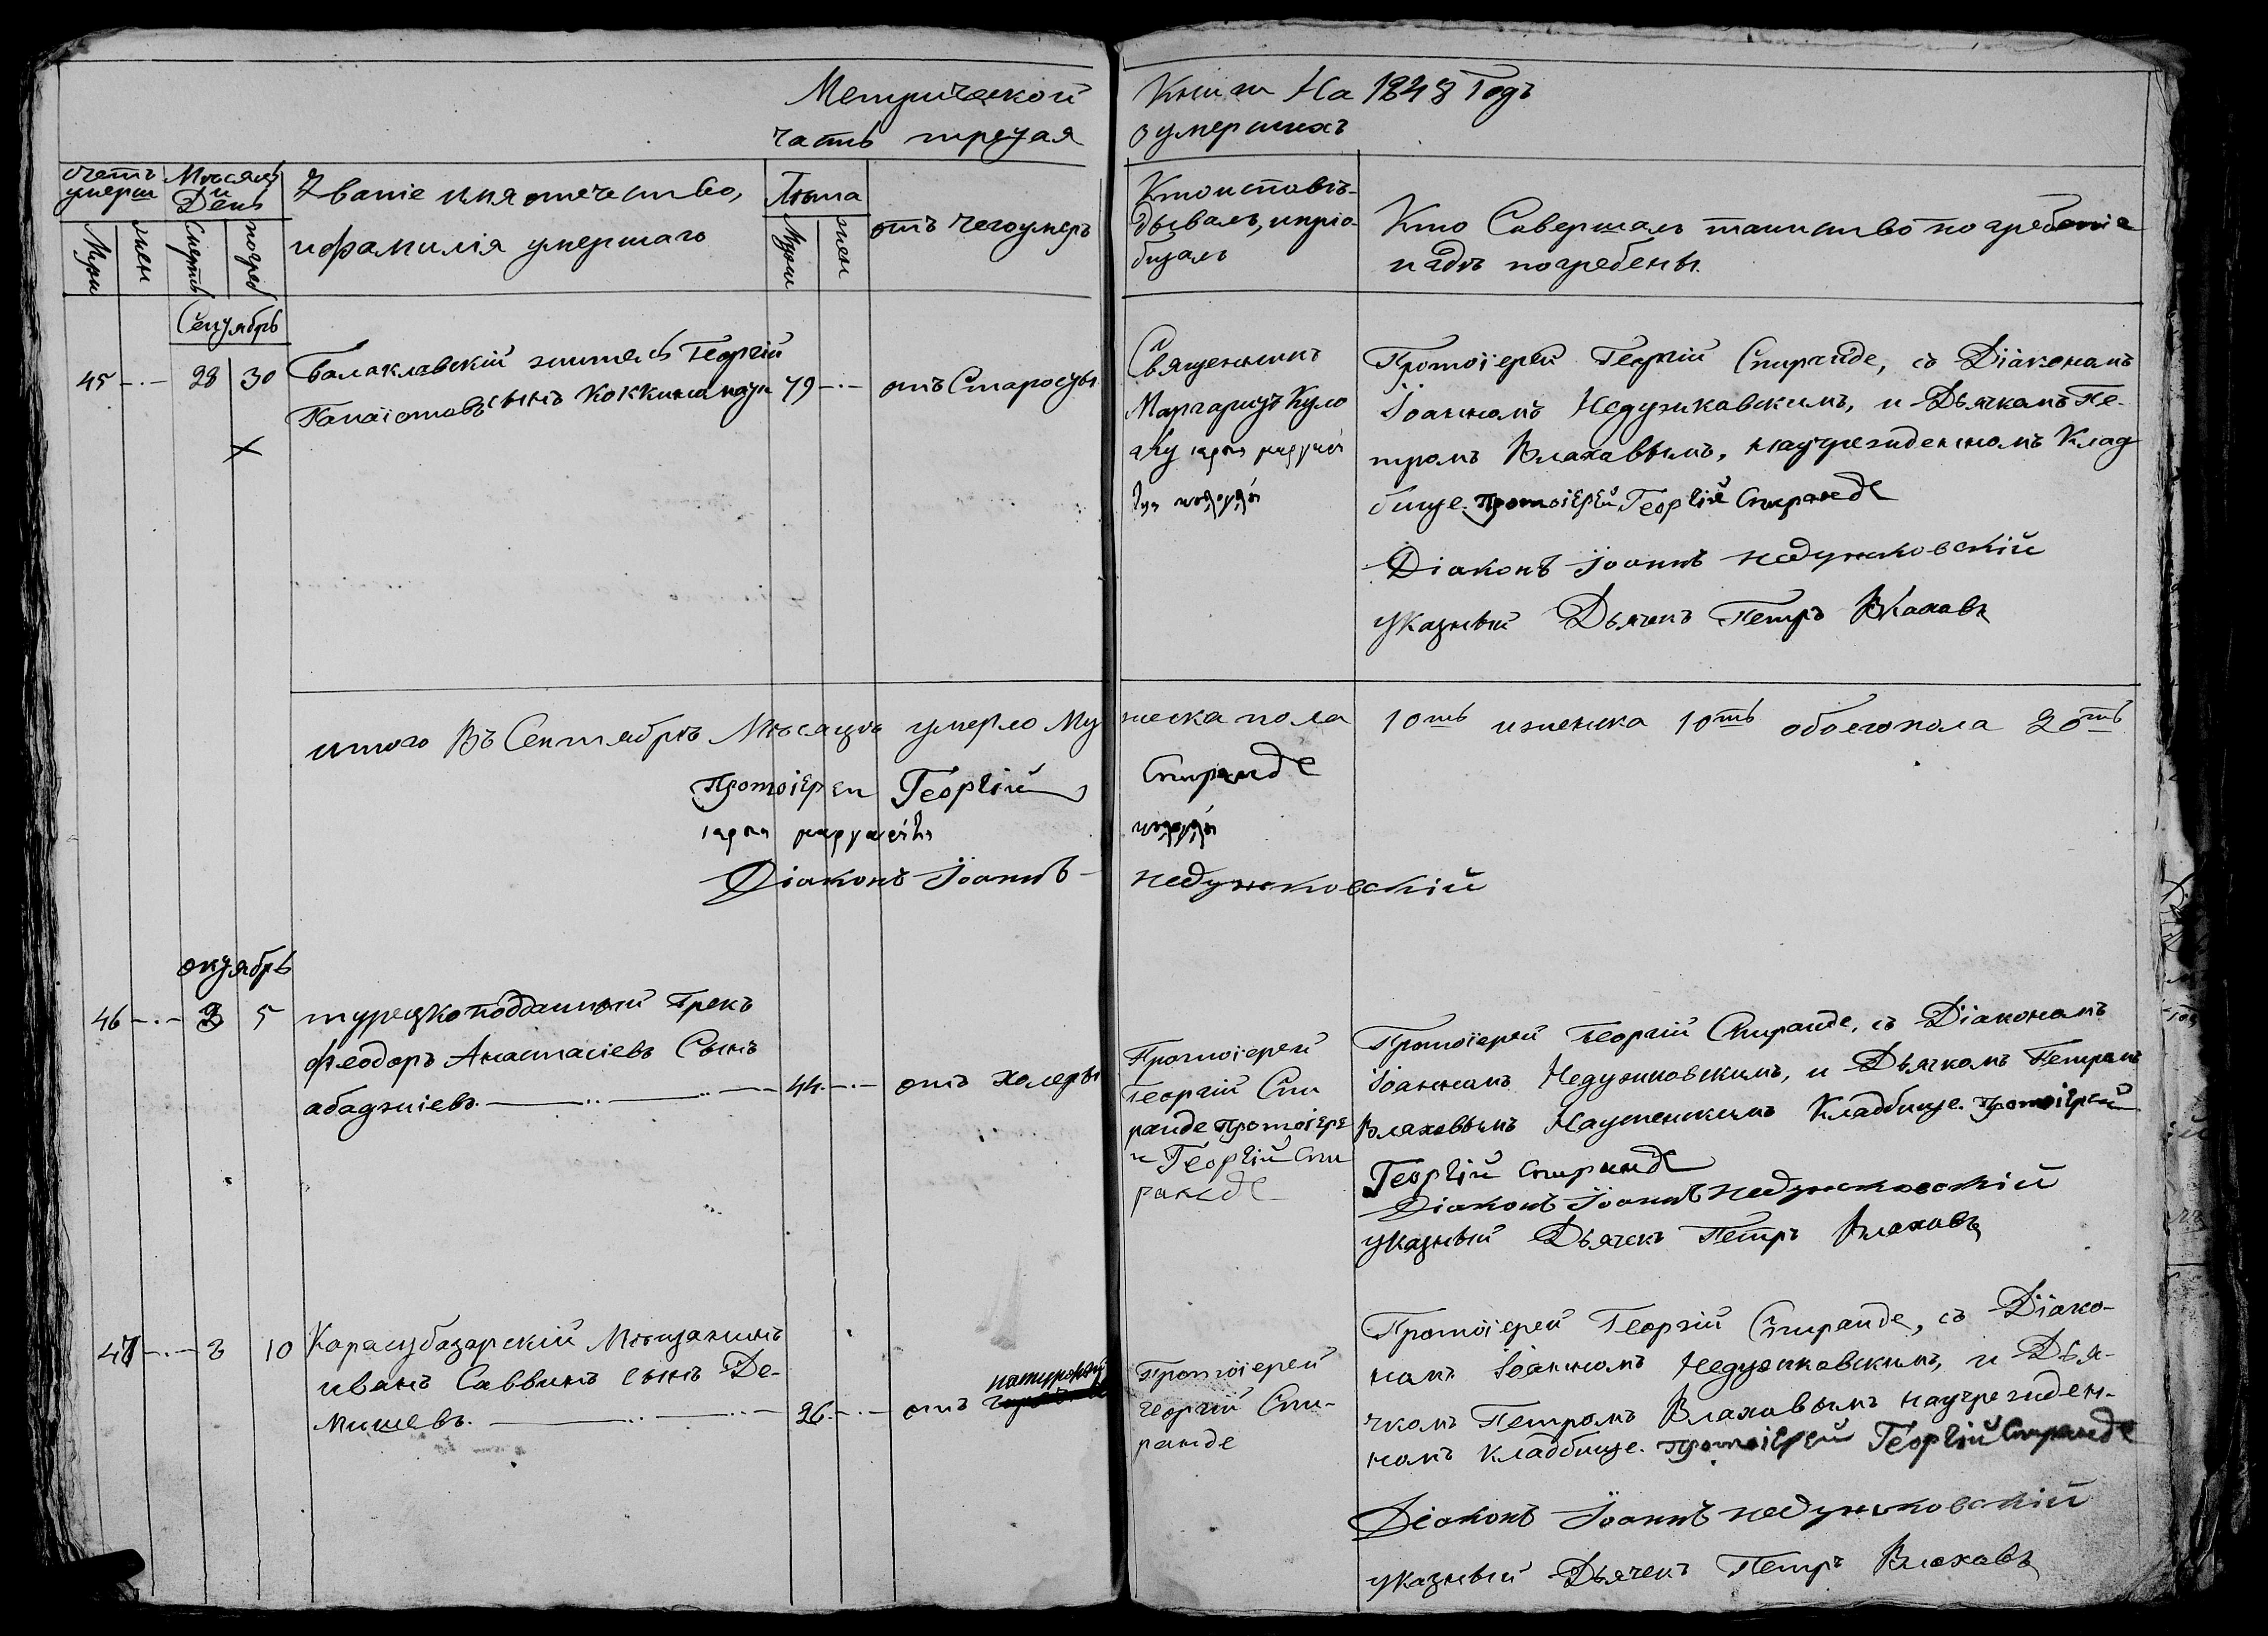 Метрической Книги На 1848 Годъ
часть третая о умершихъ
счетъ умерш
Муж
жен
Мѣсяцъ и День
Смерть
погреб
Званіе имя отечество,
и фамилія умершаго
Лѣта
Мужи
жен
отъ чего умеръ
Кто исповѣ-
дывалъ, и пріо-
бщалъ
Кто Совершалъ таинство погребенія
и гдѣ погребены.
Сентябрь
45 28 30
Балаклавскій житель Георгій
Панаіотовъ сынъ Коккина
79
отъ Старости
Священникъ
Маргаритъ
Протоіерей Георгій Спиранде, съ Діаконамъ
Іоанномъ Недужкавскимъ, и Дьячкамъ Пе-
тромъ Влахавымъ, на учрежденномъ Клад
бище. Протоіерей Георгій Спиранде
Діаконъ Іоаннъ Недужковскій
указный Дьячекъ Петръ Влахавъ
итого Въ Сентябрѣ Мѣсяцѣ умерло Мужеска пола 10ть и женска 10ть обоего пола 20ть
Протоіереи Георгій Спиранде
Діаконъ Іоаннъ Недужковскій
октябрь
46 5
турецкоподанный Грекъ
Феодоръ Анастасіевъ Сынъ
абаджіевъ.
44
отъ холеры
Протоіерей
Георгій Спи
ранде Протоіере
и Георгій Спи
ранде
Протоіерей Георгій Спиранде, съ Діаконамъ
Іоаннамъ Недужковскимъ, и Дьячкомъ Петрамъ
Влахавымъ Кладбище. Протоіерей
Георгій Спиранде
Діаконъ Іоаннъ Недужковскій
указный Дьячекъ Петръ Влахавъ
47 3 10
Карасубазарскій Мѣщанинъ
иванъ Саввинъ сынъ Де-
мишевъ.
26
отъ
Протоіерей
Георгій Спи-
ранде
Протоіерей Георгій Спиранде, съ Діако-
намъ Іоанномъ Недужкавскимъ, и Дья-
чкомъ Петромъ Влахавымъ на учрежден-
номъ Кладбище. Протоіерей Георгій Спиранде
Діаконъ Іоаннъ Недужковскій
указный Дьячекъ Петръ Влахавъ